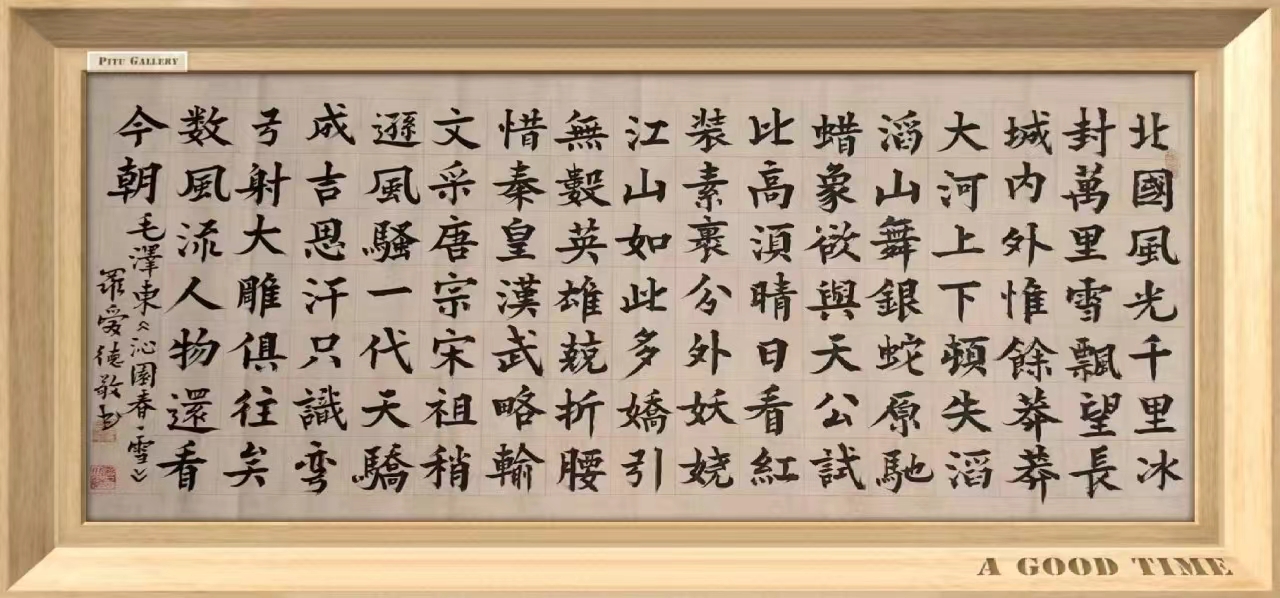 PITU GALLERY
北國風光千里冰
封萬里雪飄望長
城内外惟餘莽莽
大河上下頓失滔
滔山舞銀蛇原馳
蜡象欲與天公試
比高湏晴日看紅
装素裹分外妖娆
江山如此多嬌引
無數英雄競折腰
惜秦皇漢武略輸
文采唐宗宋祖稍
遜風騷一代天驕
成吉思汗只識弯
弓射大雕俱往矣
数風流人物還看
今朝
毛澤東《沁園春·雪》
羅愛德敬书
A GOOD TIME